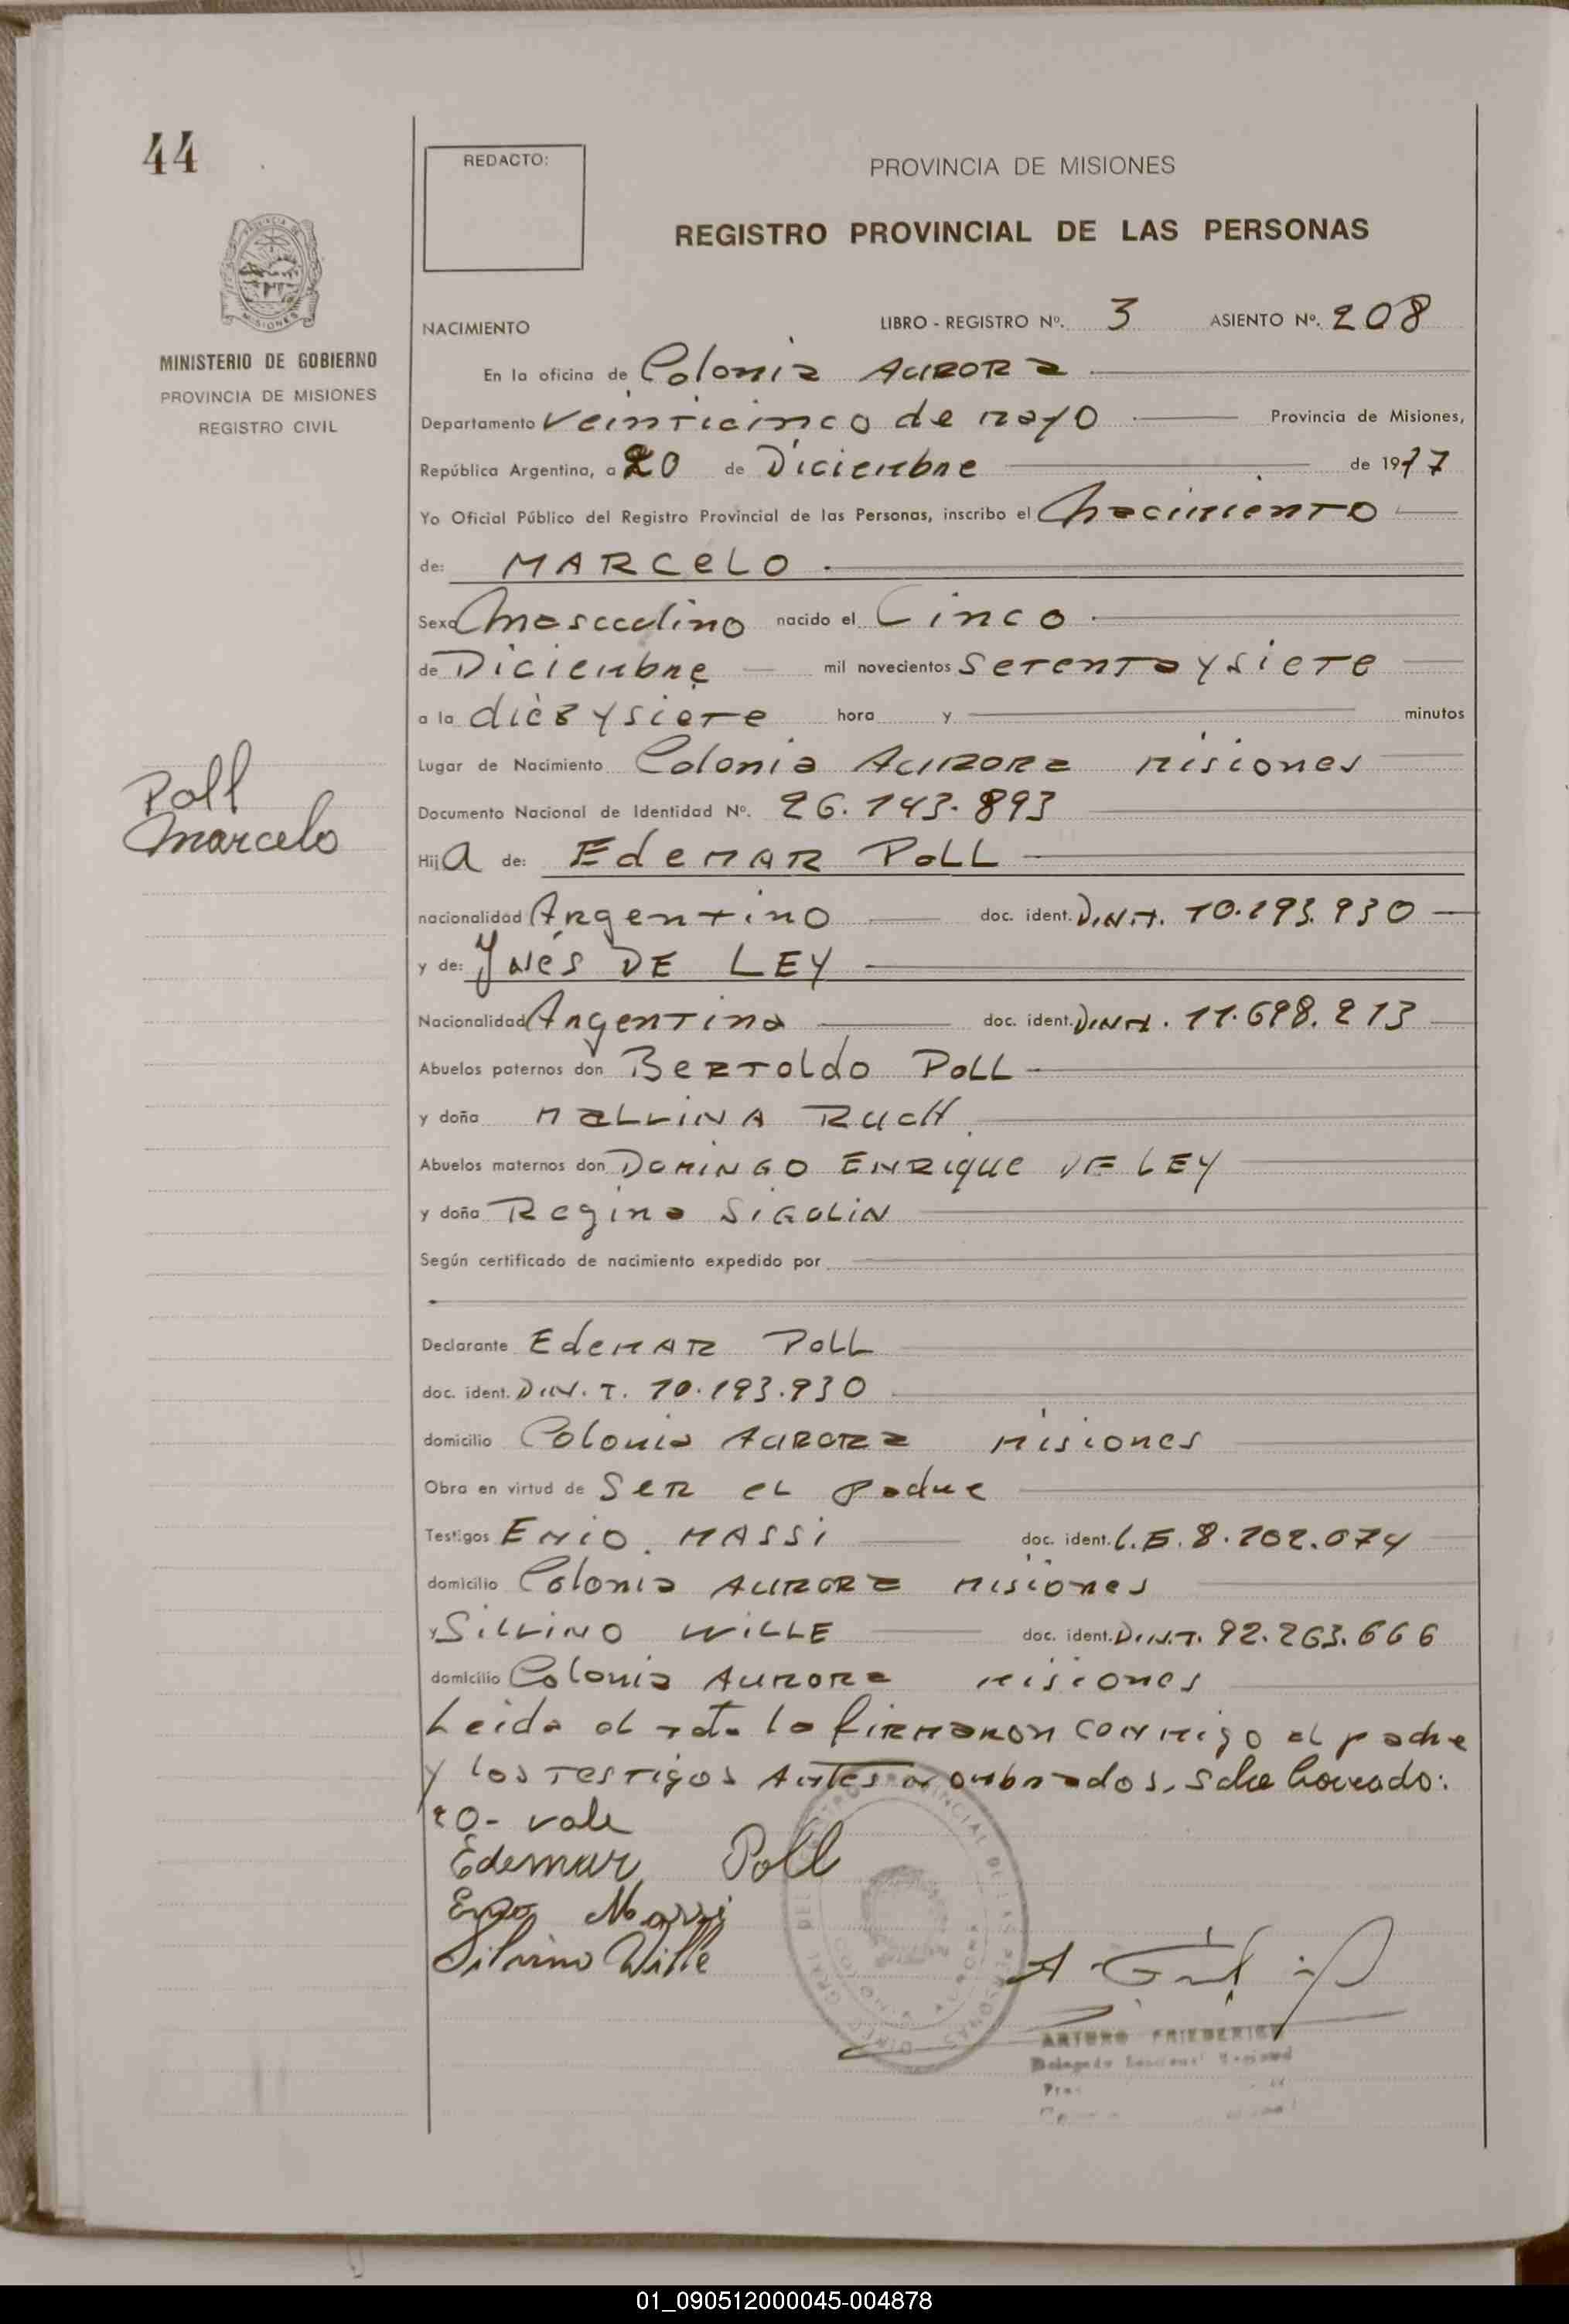 44
REDACTO:
PROVINCIA DE MISIONES
REGISTRO PROVINCIAL DE LAS PERSONAS
MINISTERIO DE GOBIERNO
PROVINCIA DE MISIONES
REGISTRO CIVIL
NACIMIENTO LIBRO - REGISTRO Nº. 3 ASIENTO Nº. 208
En la oficina de Colonia AURORA
Departamento Veinticinco de mayo Provincia de Misiones,
República Argentina, a 20 de Diciembre de 1977
Yo Oficial Público del Registro Provincial de las Personas, inscribo el Nacimiento
de: MARCELO
Sexo Masculino nacido el Cinco
de Diciembre mil novecientos setenta y siete
a la dièz y siete hora y minutos
Lugar de Nacimiento Colonia AURORA Misiones
Poll
Marcelo
Documento Nacional de Identidad Nº. 26.143.893
Hija de: EdeMAR POLL
nacionalidad Argentino doc. ident. D.N.I. 10.193.930
y de: YNéS DE LEY
Nacionalidad Argentina doc. ident. D.N.I. 11.698.213
Abuelos paternos don BERToldo POLL
y doña MALVINA RUCH
Abuelos maternos don DOMINGO ENRIQUE DE LEY
y doña Regina SIGOLIN
Según certificado de nacimiento expedido por
Declarante EdeMAR POLL
doc. ident. D.N.I. 10.193.930
domicilio Colonia AURORA Misiones
Obra en virtud de SER el padre
Testigos ENIO MASSI doc. ident. L.E. 8.202.074
domicilio Colonia AURORA Misiones
y SILVINO WILLE doc. ident. D.N.I. 92.263.666
domicilio Colonia AURORA Misiones
Leida el acta la firmaron conmigo el padre
y los testigos antes nombrados, sobre borrado:
20- vale
Edemar Poll
Massi
Silvino Wille
ARTURO FRIEDERICH
01_090512000045-004878